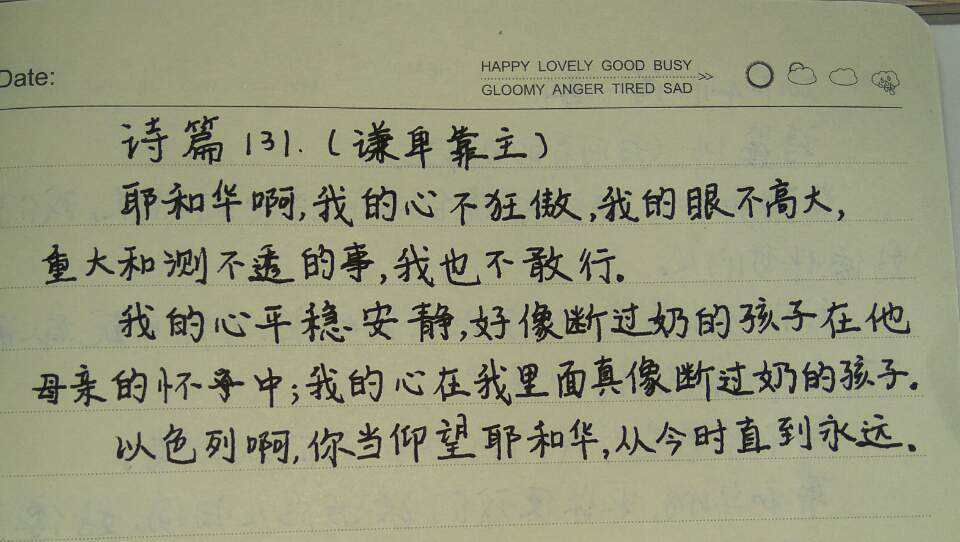 Date:
HAPPY LOVELY GOOD BUSY
GLOOMY ANGER TIRED SAD
诗篇131.(谦卑靠主)
耶和华啊,我的心不狂傲,我的眼不高大,
重大和测不透的事,我也不敢行。
我的心平稳安静,好像断过奶的孩子在他
母亲的怀中;我的心在我里面真像断过奶的孩子。
以色列啊,你当仰望耶和华,从今时直到永远。